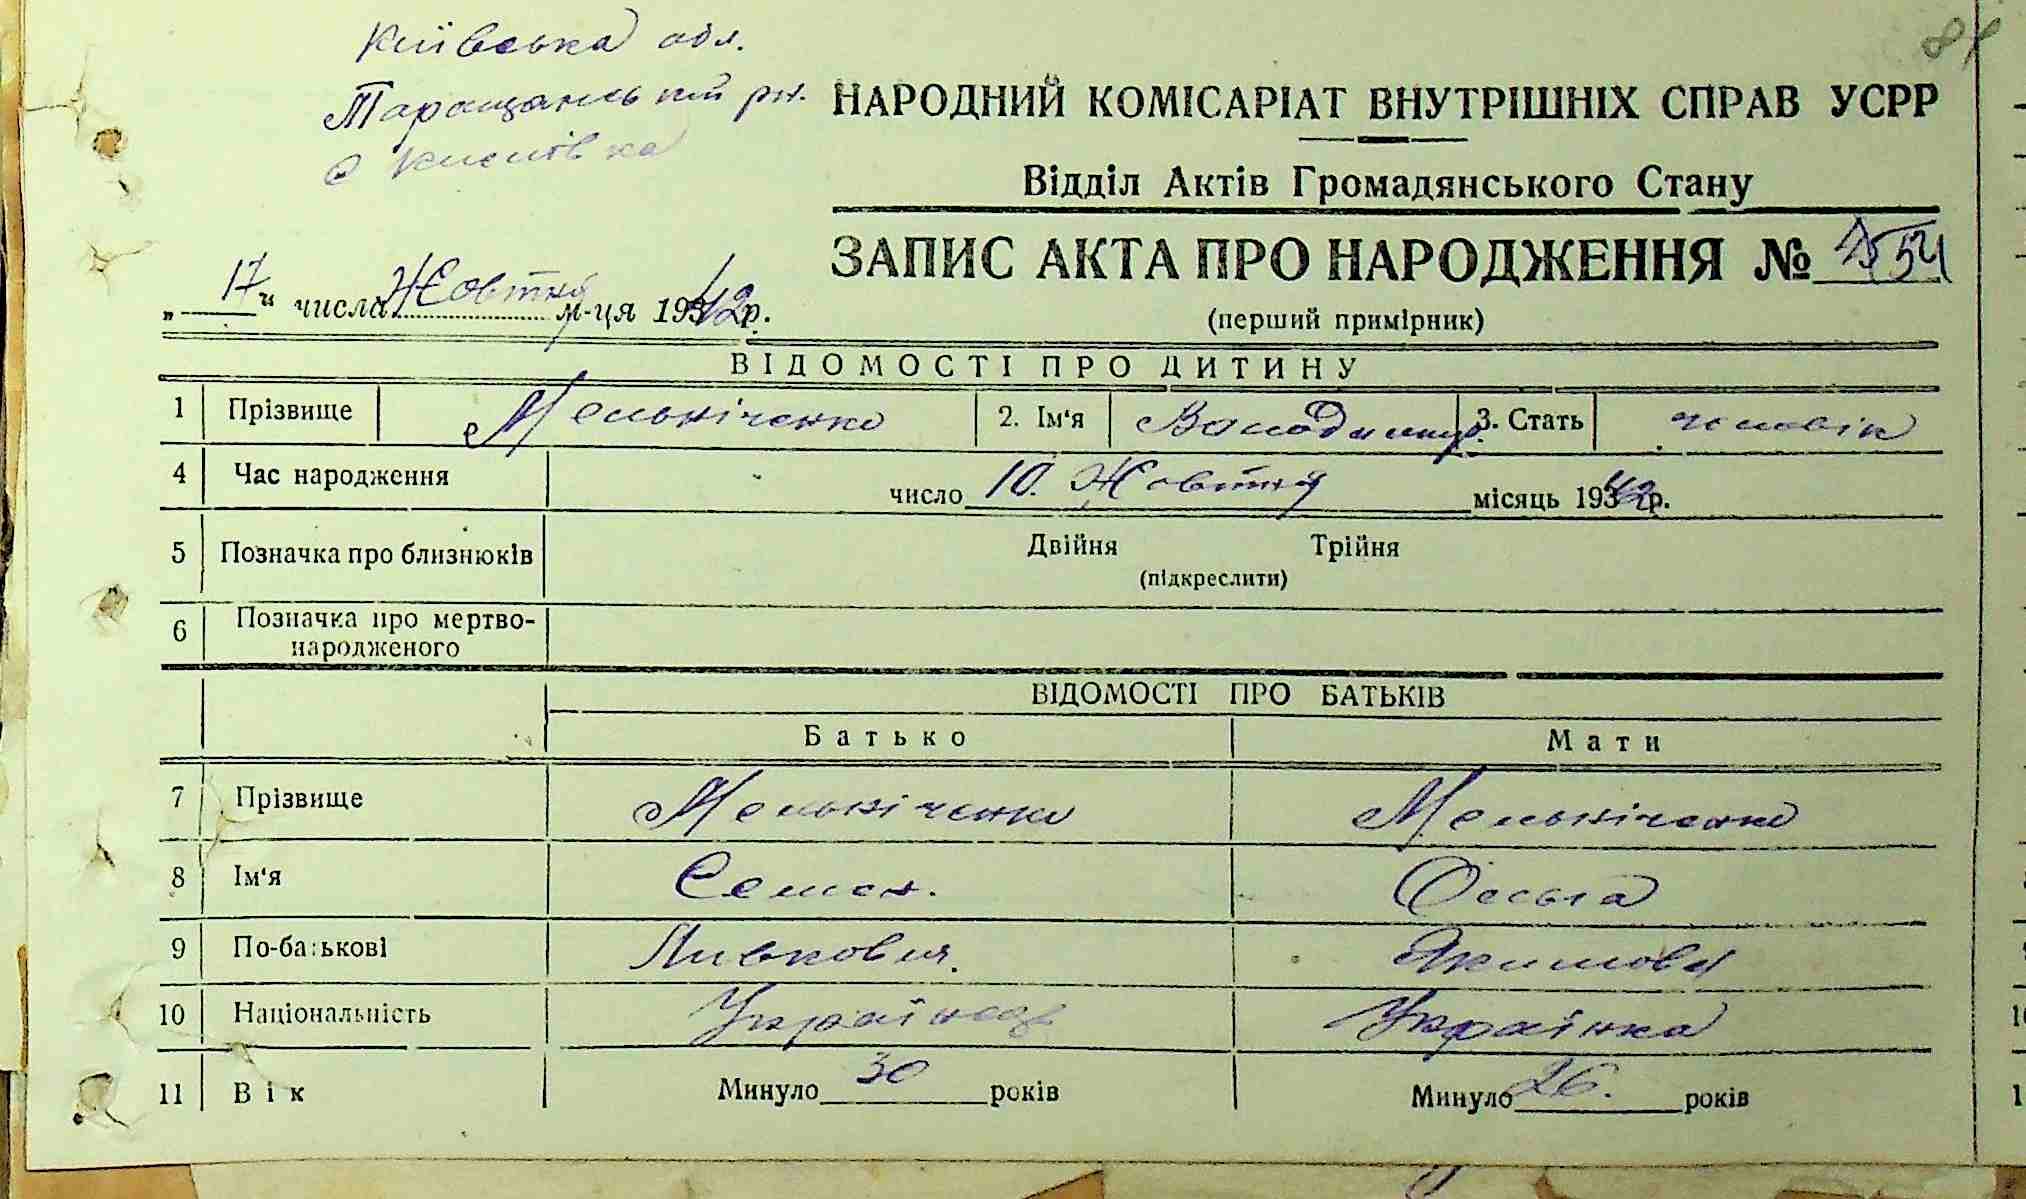 81
Київська обл.
Таращанський рн.
с Кислівка
НАРОДНИЙ КОМІСАРІАТ ВНУТРІШНІХ СПРАВ УСРР
Відділ Актів Громадянського Стану
ЗАПИС АКТА ПРО НАРОДЖЕННЯ №
(перший примірник)
„17“ числа Жовтня м-ця 1942р.
ВІДОМОСТІ ПРО ДИТИНУ
1 Прізвище Мельніченко 2. Ім'я Володимир. 3. Стать чоловік
4 Час народження число 10. Жовтня місяць 1942р.
5 Позначка про близнюків Двійня Трійня
(підкреслити)
6 Позначка про мертво-
народженого
ВІДОМОСТІ ПРО БАТЬКІВ
Батько Мати
7 Прізвище Мельніченко Мельніченко
8 Ім'я Семен. Ольга
9 По-батькові Якимовн
10 Національність Українець Українка
11 Вік Минуло 30 років Минуло 26. років